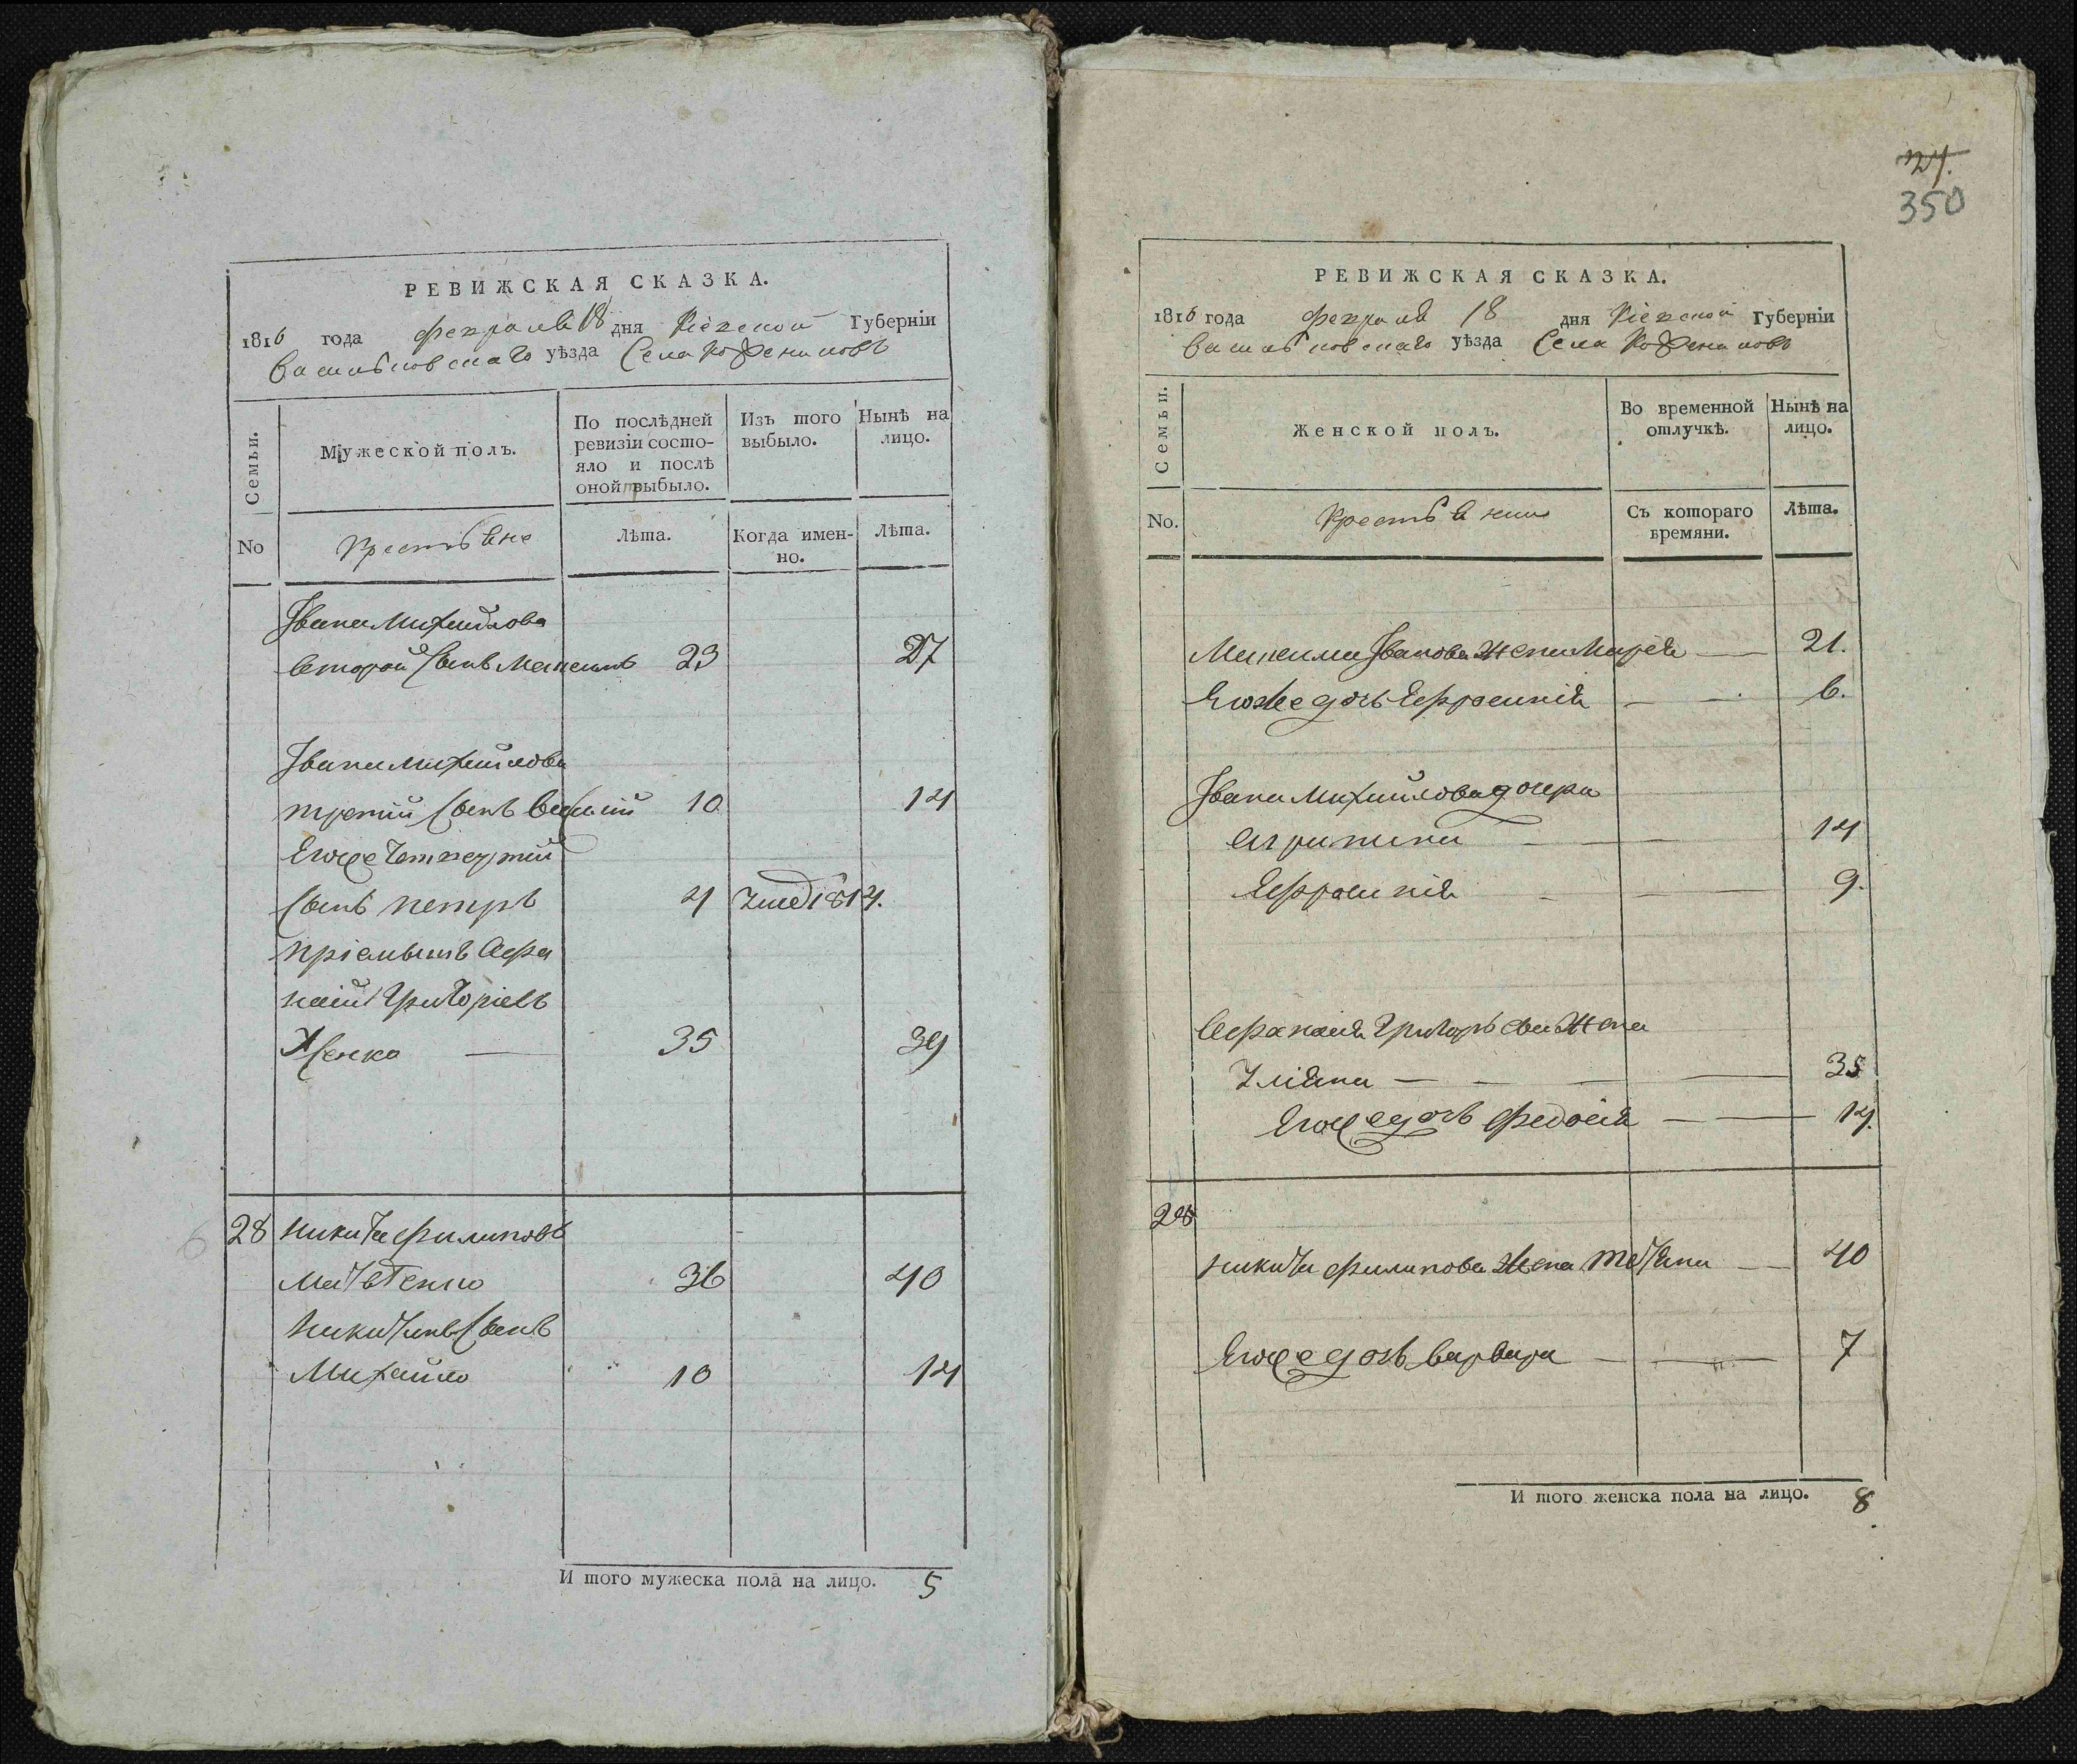 РЕВИЖСКАЯ СКАЗКА.
1816 года февраля 18 дня Кіевской Губерніи
Васильковскаго уѣзда Села Кожениковъ
Семьи.
Мужеской полъ.
По послѣдней ревизіи состояло и послѣ оной выбыло.
Изъ того выбыло.
Нынѣ на лицо.
No
Крестьяне
Лѣта.
Когда именно.
Лѣта.
Івана Михайлова
второй сынъ Максимъ 23 27
Івана Михайлова
третій сынъ Василій 10 14
Егоже четвертий
сынъ петръ 4 Умер 1814.
пріемышъ Афа
насій Григоріевъ
35 39
28 никита филиповъ
Матвѣенко 36 40
никитинъ сынъ
Михайло 10 14
И того мужеска пола на лицо. 5
27.
350
РЕВИЖСКАЯ СКАЗКА.
1816 года февраля 18 дня Кіевской Губерніи
Васильковскаго уѣзда Села Кожениковъ
Семьи.
Женской полъ.
Во временной отлучкѣ.
Нынѣ на лицо.
No.
Крестьянки
Съ котораго времяни.
Лѣта.
Максима Іванова жена Марія — 21.
Егоже дочь Ефросинія — — 6.
Івана Михайлова дочери
агрипина — — 14
Ефросинія — — 9.
Афанасія Григорьева жена
Уліяна — — — — 35
Егоже дочь Федосія — — 14.
28
никити филипова жена Тетяна — 40
Егоже дочь варвара — — 7
И того женска пола на лицо. 8